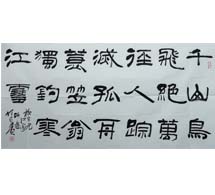 千山鳥
飛絕萬
徑人踪
滅孤舟
蓑笠翁
獨釣寒
江雪